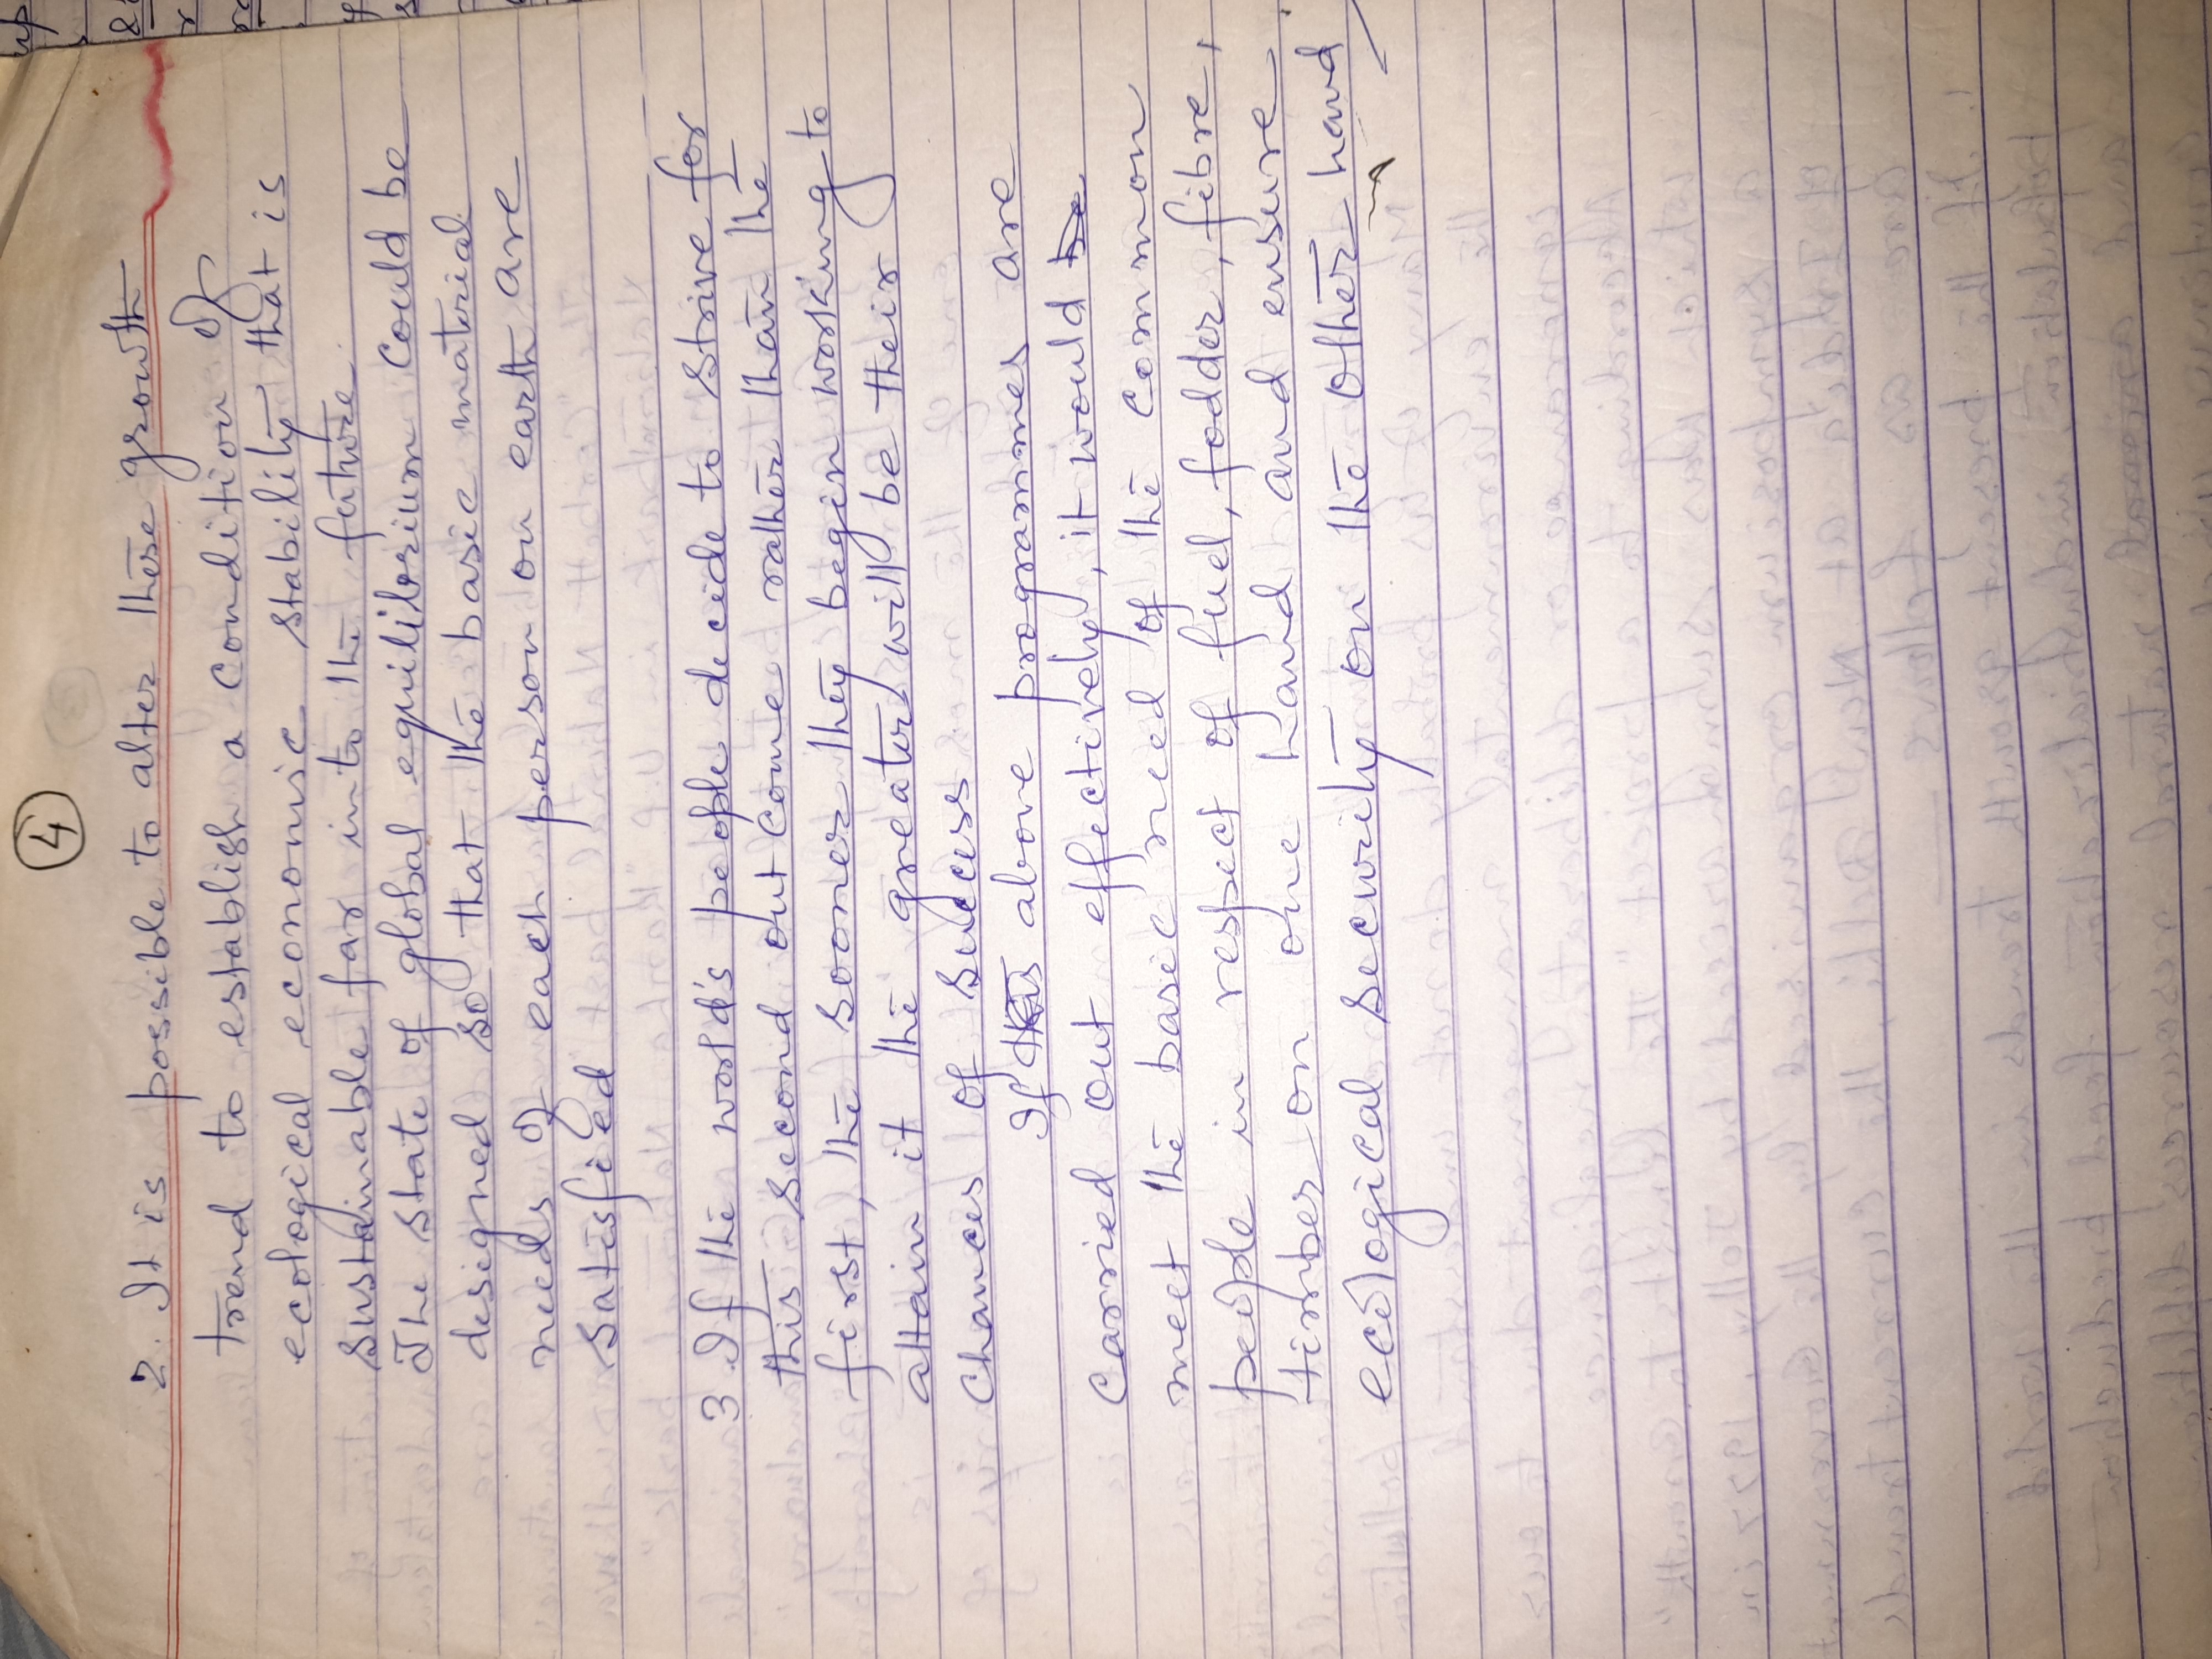 4
2. It is possible to alter these growth
trend to establish a condition of
ecological economic stability that is
sustainable far into the future.
The state of global equilibrium could be
designed so that the basic material
needs of each person on earth are
satisfied
3 If the world's people decide to strive for
this second out come rather than the
first, the sooner they begin working to
attain it the greater will be their
chances of success
If above programmes are
carried out effectively, it would
meet the basic need of the common
people in respect of fuel, fodder, fibre,
timber on one hand and ensure
ecological security on the other hand